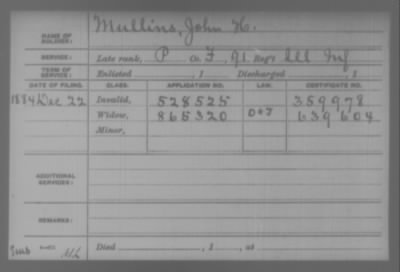 NAME OF SOLDIER: Mullins, John H.
SERVICE: Late rank, P Co. F, 91 Reg't Ill Inf
TERM OF SERVICE: Enlisted , 1 Discharged , 1
DATE OF FILING. CLASS. APPLICATION NO. LAW. CERTIFICATE NO.
1884 Dec 22 Invalid, 528525 359978
Widow, 865320 639604
Minor,
ADDITIONAL SERVICES:
REMARKS:
Died , 1 , at